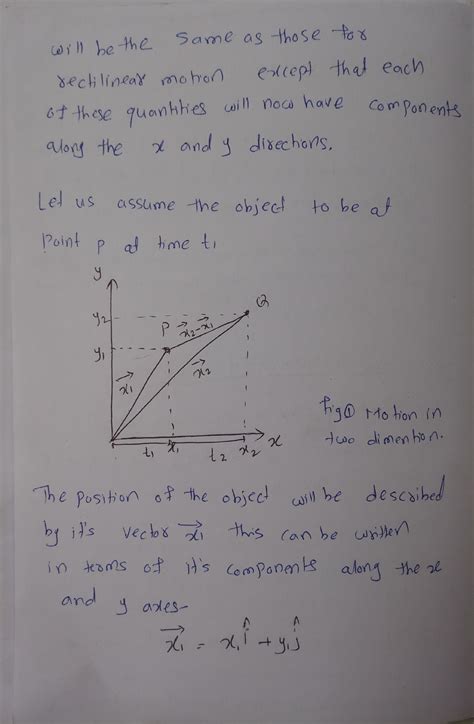 will be the same as those for
rectilinear motion except that each
of these quantities will now have components
along the x and y directions.
Let us assume the object to be at
Point P at time t₁
y
y₂
Q
P
x⃗₂-x⃗₁
y₁
x⃗₁
x⃗₂
t₁ x₁ t₂ x₂ x
Fig① Motion in
two dimention.
The position of the object will be described
by it's vector x⃗₁ this can be written
in terms of it's components along the x
and y axes-
x⃗₁ = x₁î + y₁ĵ